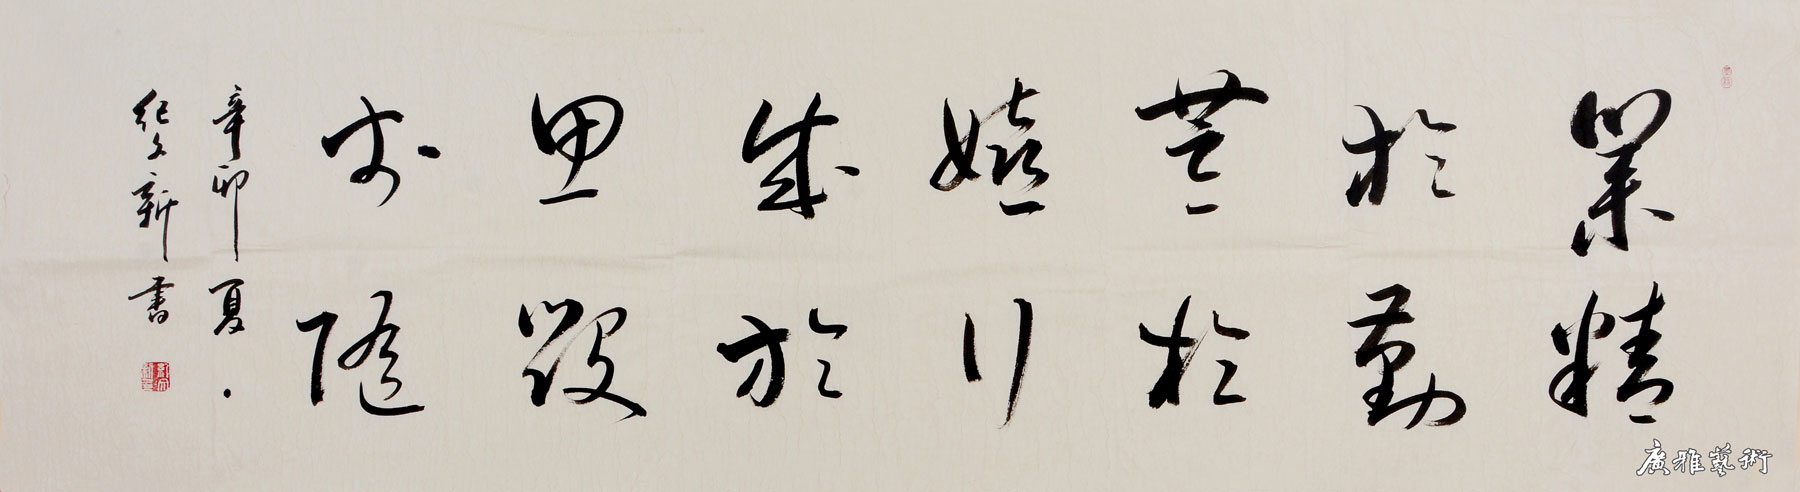 業精
於勤
荒於
嬉行
成於
思毀
於隨
辛卯夏
纪文新書
廣雅藝術